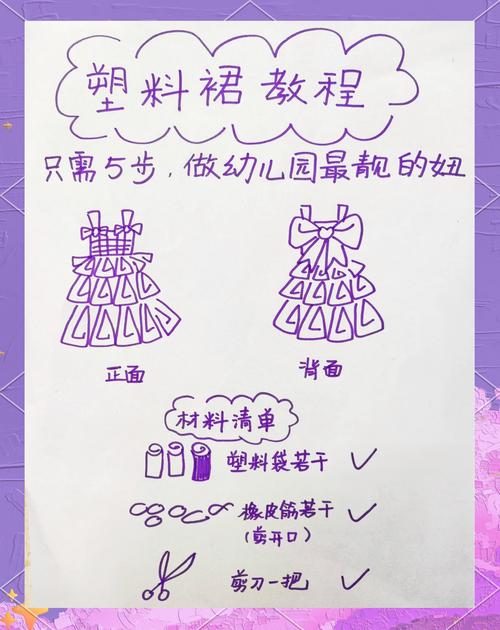 塑料裙教程
只需5步，做幼儿园最靓的妞
正面
背面
材料清单
塑料袋若干
橡皮筋若干
(剪开口)
剪刀一把